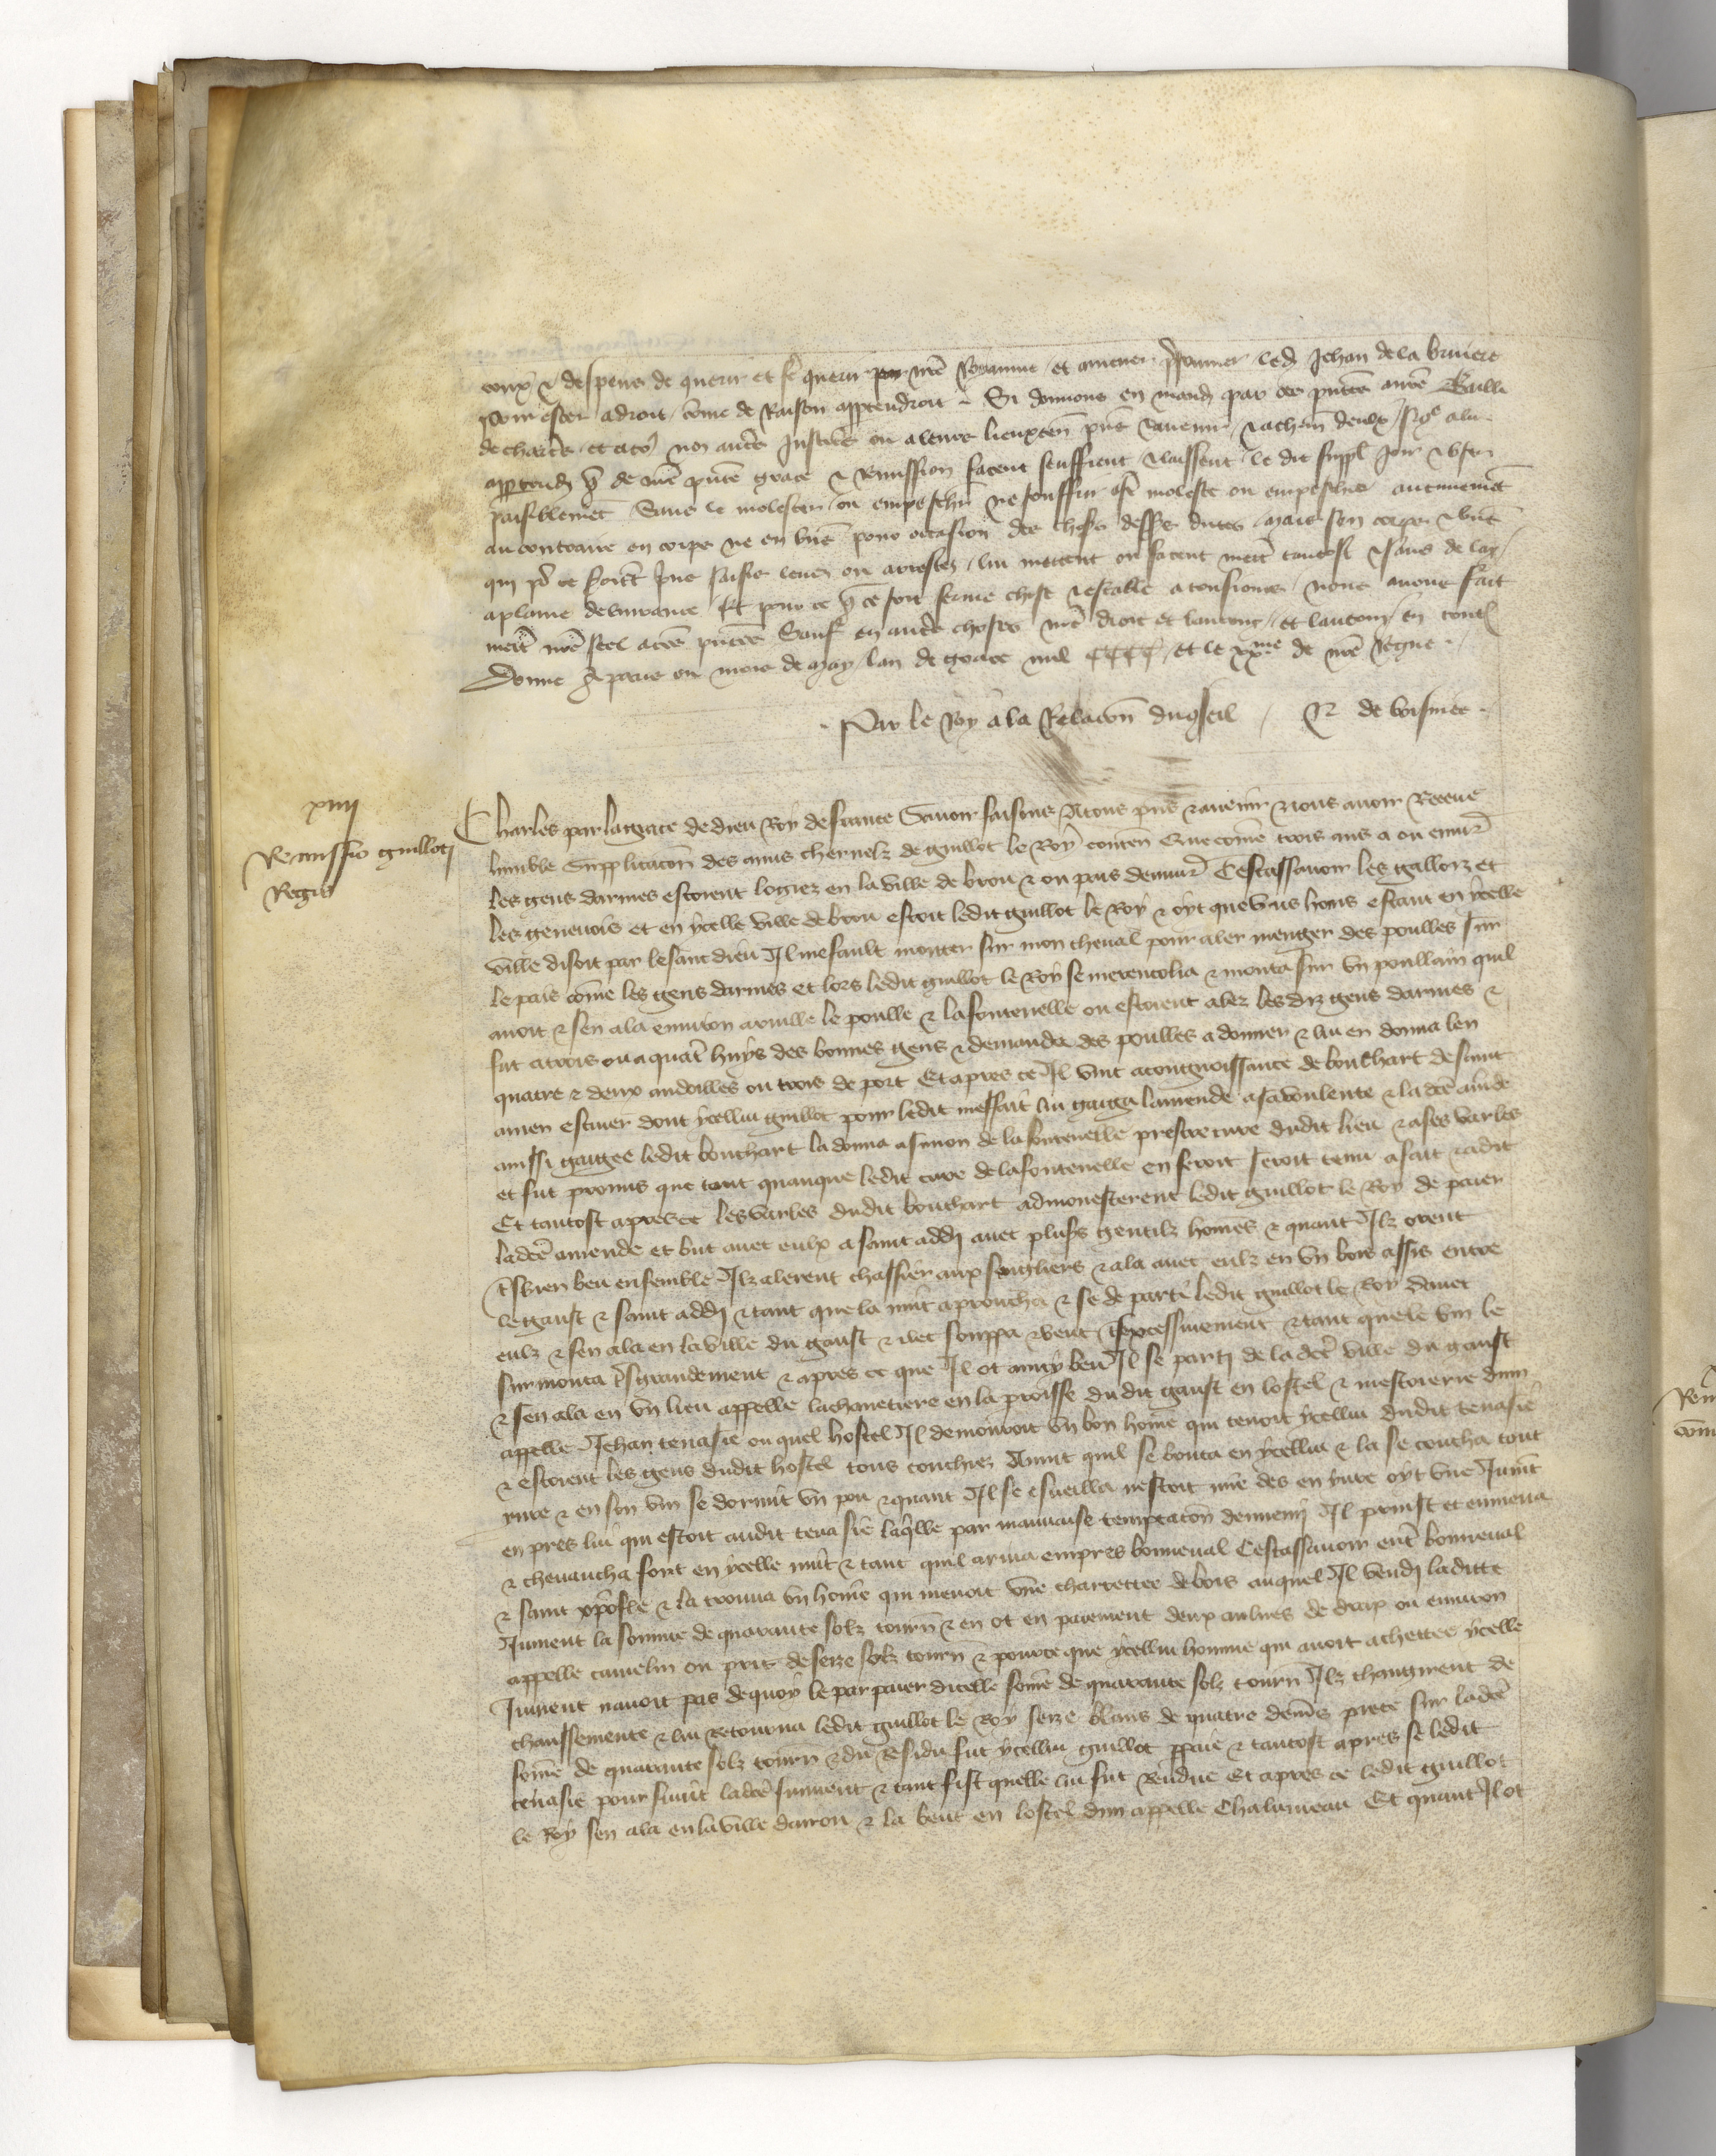 coux & despens de querir et fe querir par nre Royaume et amener prisonnier led Jehan de la bruiere
pour ester a droit come de Raison appartendroit . Si donnons en mand par ces pntes au Bailli
de chartres et a to noz autres Justiciers ou a leurs lieuxten pns & avenir & a chun deulx sicoe a lui
appartendra q de nre pnte grace & Remission facent seuffrent & laissent le dit suppl joir & user
paisiblemt Sans le molester ou empeschier ne souffrir estre moleste ou empeschie aucunement
au contraire en corps ne en biens pour occasion des choses dessus dictes mais son corps & biens
qui pr ce seroient prins saisis levez ou arrestez lui mettent ou facent mettre tantost & sans delay
a plaine delivrance Et pour ce q ce soit ferme chose & estable a tousjours nous avons fait
mettre nre scel a ces pntes Sauf en autres choses nre droit et lautruy et lautruy en toutes
Donne a paris ou mois de may lan de grace mil CCCC et le xxme de nre Regne .
. Par le Roy a la Relacon du conseil / N de voisines .
xiiij
Remissio guilloti
Regis
Charles par la grace de dieu Roy de france Savoir faisons A tous pns & avenir nous avoir Receue
lumble Supplicacon des amis charnelz de guillot le Roy conten Que come trois ans a ou environ
les gens darmes estoient logiez en la ville de brou & ou pais denviron Cestassavoir les gallois et
les genevois et en ycelle ville de brou estoit ledit guillot le Roy & oyt que uns homs estant en ycelle
ville disoit par le sanc dieu Il me fault monter sur mon cheval pour aler menger des poulles sur
le pais come les gens darmes et lors ledit guillot le Roy se merencolia & monta sur un poullain quil
avoit & sen ala environ arville le poulle & la fontenelle ou estoient alez les diz gens darmes &
fut a trois ou a quatre huys des bonnes gens & demanda des poulles a donner & lui en donna len
quatre & deux andoilles ou trois de port Et apres ce Il vint a congnoissance de bouchart de saint
amen escuier dont ycellui guillot pour ledit meffait lui gaiga lamende a sa voulente & la dce amde
ainssi gaigee ledit bouchart la donna a simon de la fontenelle prestre cure dudit lieu & a ses varles
et fut promis que tout quanque ledit cure de la fontenelle en feroit seroit tenu a fait & a dit
Et tantost apres ce les varles dudit bouchart admonesterent ledit guillot le Roy de paier
la dce amende et but avec eulx a saint addj avec plusrs gentilz homes & quant Ilz orent
tsbien beu ensemble Ilz alerent chassier aux sengliers & ala avec eulz en un bois assis entre
le gaust & saint addj & tant que la nuit aproucha & se de parti ledit guillot le Roy davec
eulz & sen ala en la ville du gaust & ilec souppa & beut tsexcessivement & tant que le vin le
surmonta tsgrandement & apres ce que Il ot ainsy beu Il se parti de la dce ville du gaust
& sen ala en un lieu appelle la chanetiere en la proisse du dit gaust en lostel & mestoierie dun
appelle Jehan tenasie ou quel hostel Il demouroit un bon home qui tenoit ycellui dudit tenasie
& estoient les gens dudit hostel tous couchiez Avint quil se bouta en ycellui & la se coucha tout
yvre & en son vin se dormit un pou & quant Il se esveilla nestoit mie des en yvre oyt une Jument
en pres lui qui estoit audit tenasie laqlle par mauvaise temptacon dennemj Il proinst et enmena
& chevaucha fort en ycelle nuit & tant quil ariva empres bonneval Cestassavoir entre bonneval
& saint xpofle & la trouva un home qui menoit une charrettee de bois auquel Il vendj la ditte
Jument la somme de quarante solz tourn & en ot en paiement deux aulnes de drap ou environ
appelle camelin ou pris de seze solz tourn & pource que ycellui homme qui avoit achettee ycelle
Jument navoit pas de quoy le parpaier dicelle some de quarante solz tourn Ilz changirent de
chaussemente & lui retourna ledit guillot le Roy seze blans de quatre deniers piece sur la dce
some de quarante solz tourn & du Residu fut ycellui guillot ppaie & tantost apres se ledit
tenasie pour suivit la dce Jument & tant fist quelle lui fut Rendue Et apres ce ledit guillot
le Roy sen ala en la ville dairou & la beut en lostel dun appelle Chalumeau Et quant Il ot